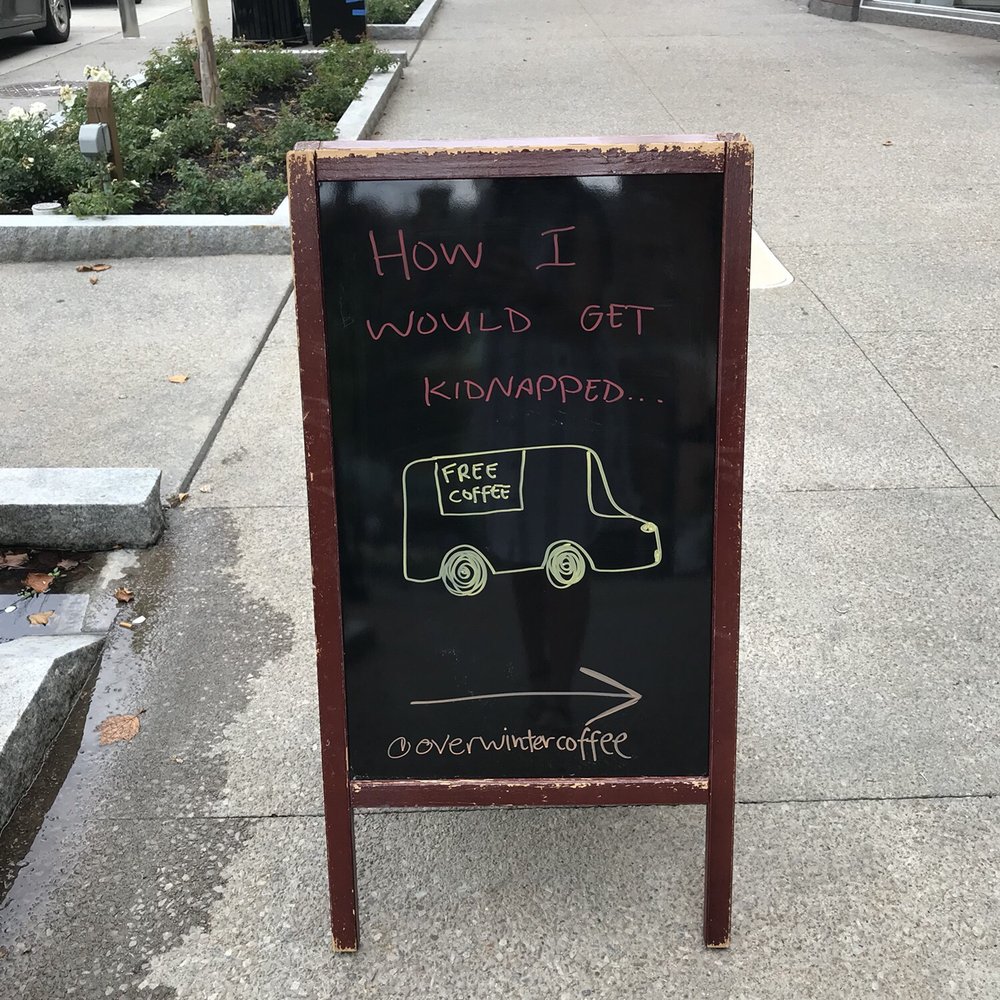 HOW I
WOULD GET
KIDNAPPED...
FREE
COFFEE
@overwintercoffee